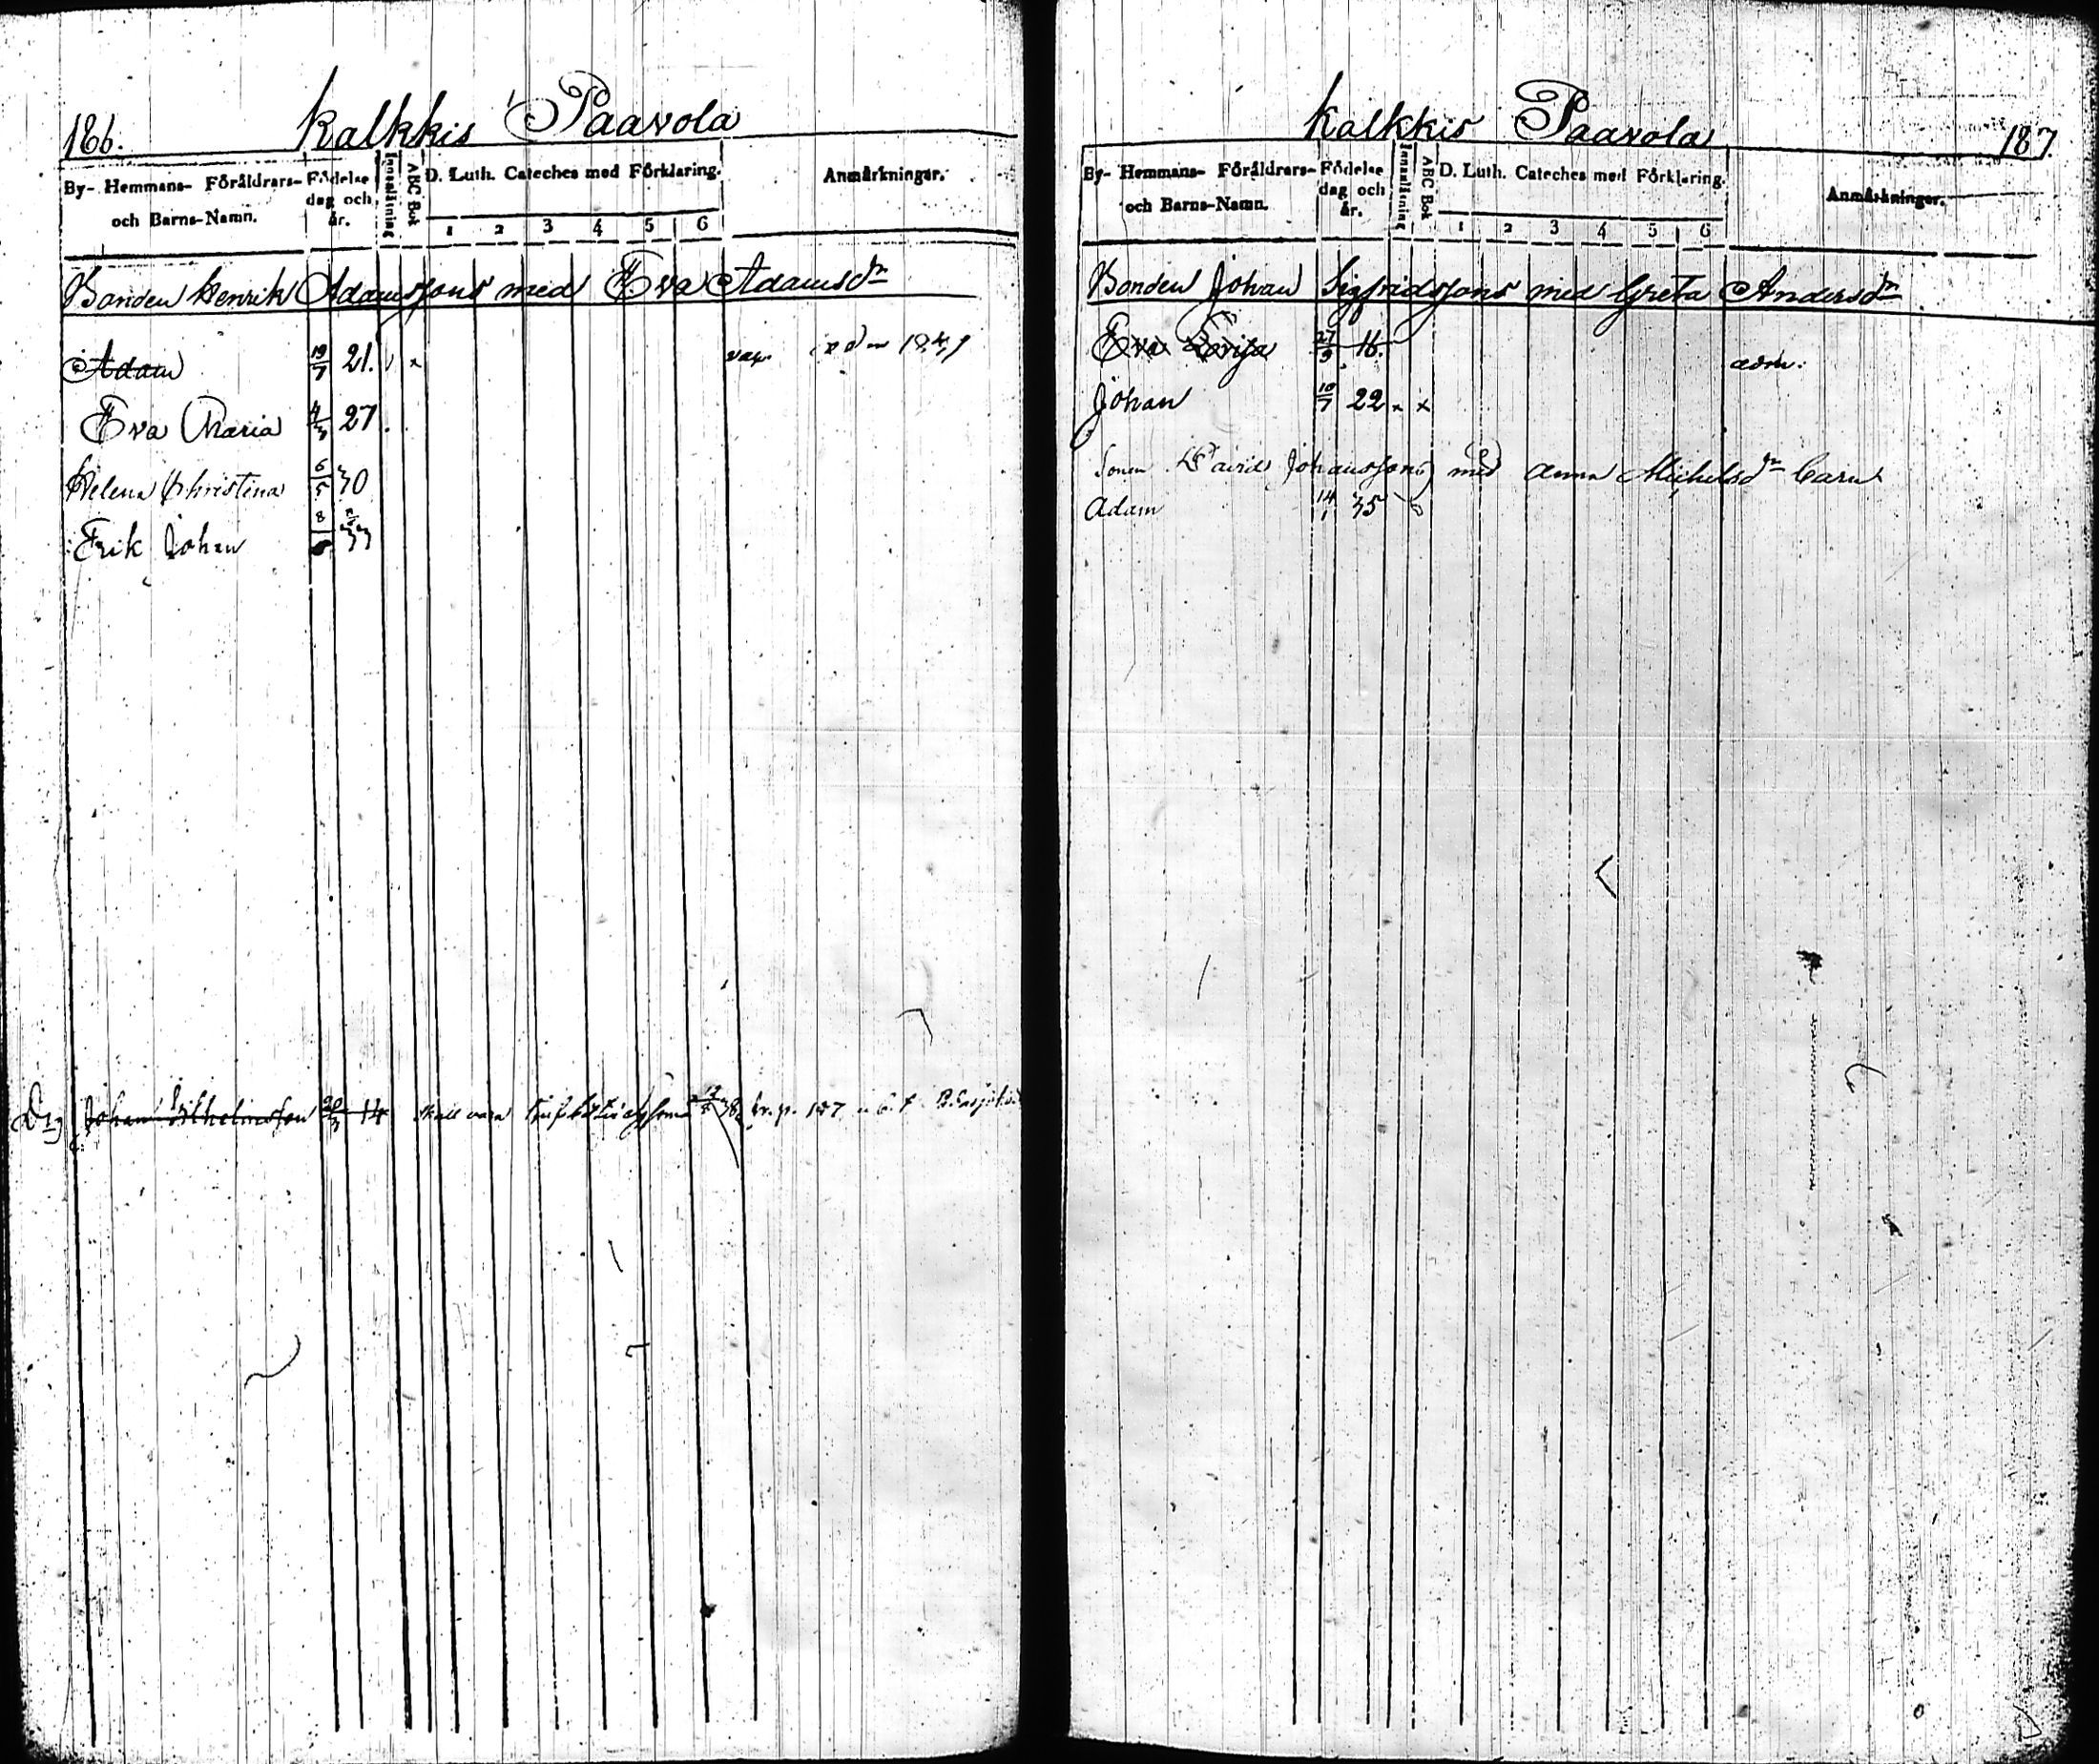 186.
Kalkkis Paavola
By- Hemmans- Föräldrars- och Barns-Namn.
Födelse dag och år.
Innanläsning
ABC Bok
D. Luth. Cateches med Förklaring.
1 2 3 4 5 6
Anmärkningar.
Bonden Henrik Adamssons med Eva Adamsdr
Adam 19/7 21. vac.
Eva Maria 27
Helena Christina 6/5 30
Erik Johan 8 33
Drg Johan Wilhelmsson 14 skall vara
187.
Kalkkis Paavola
By- Hemmans- Föräldrars- och Barns-Namn.
Födelse dag och år.
Innanläsning
ABC Bok
D. Luth. Cateches med Förklaring.
1 2 3 4 5 6
Anmärkningar.
Bonden Johan Sigfridssons med Greta Andersdr
Eva Lovisa 27/9 16. adm.
Johan 10/7 22 x x
Sonen David Johanssons med Anna Michelsdr barn
Adam 14/1 35